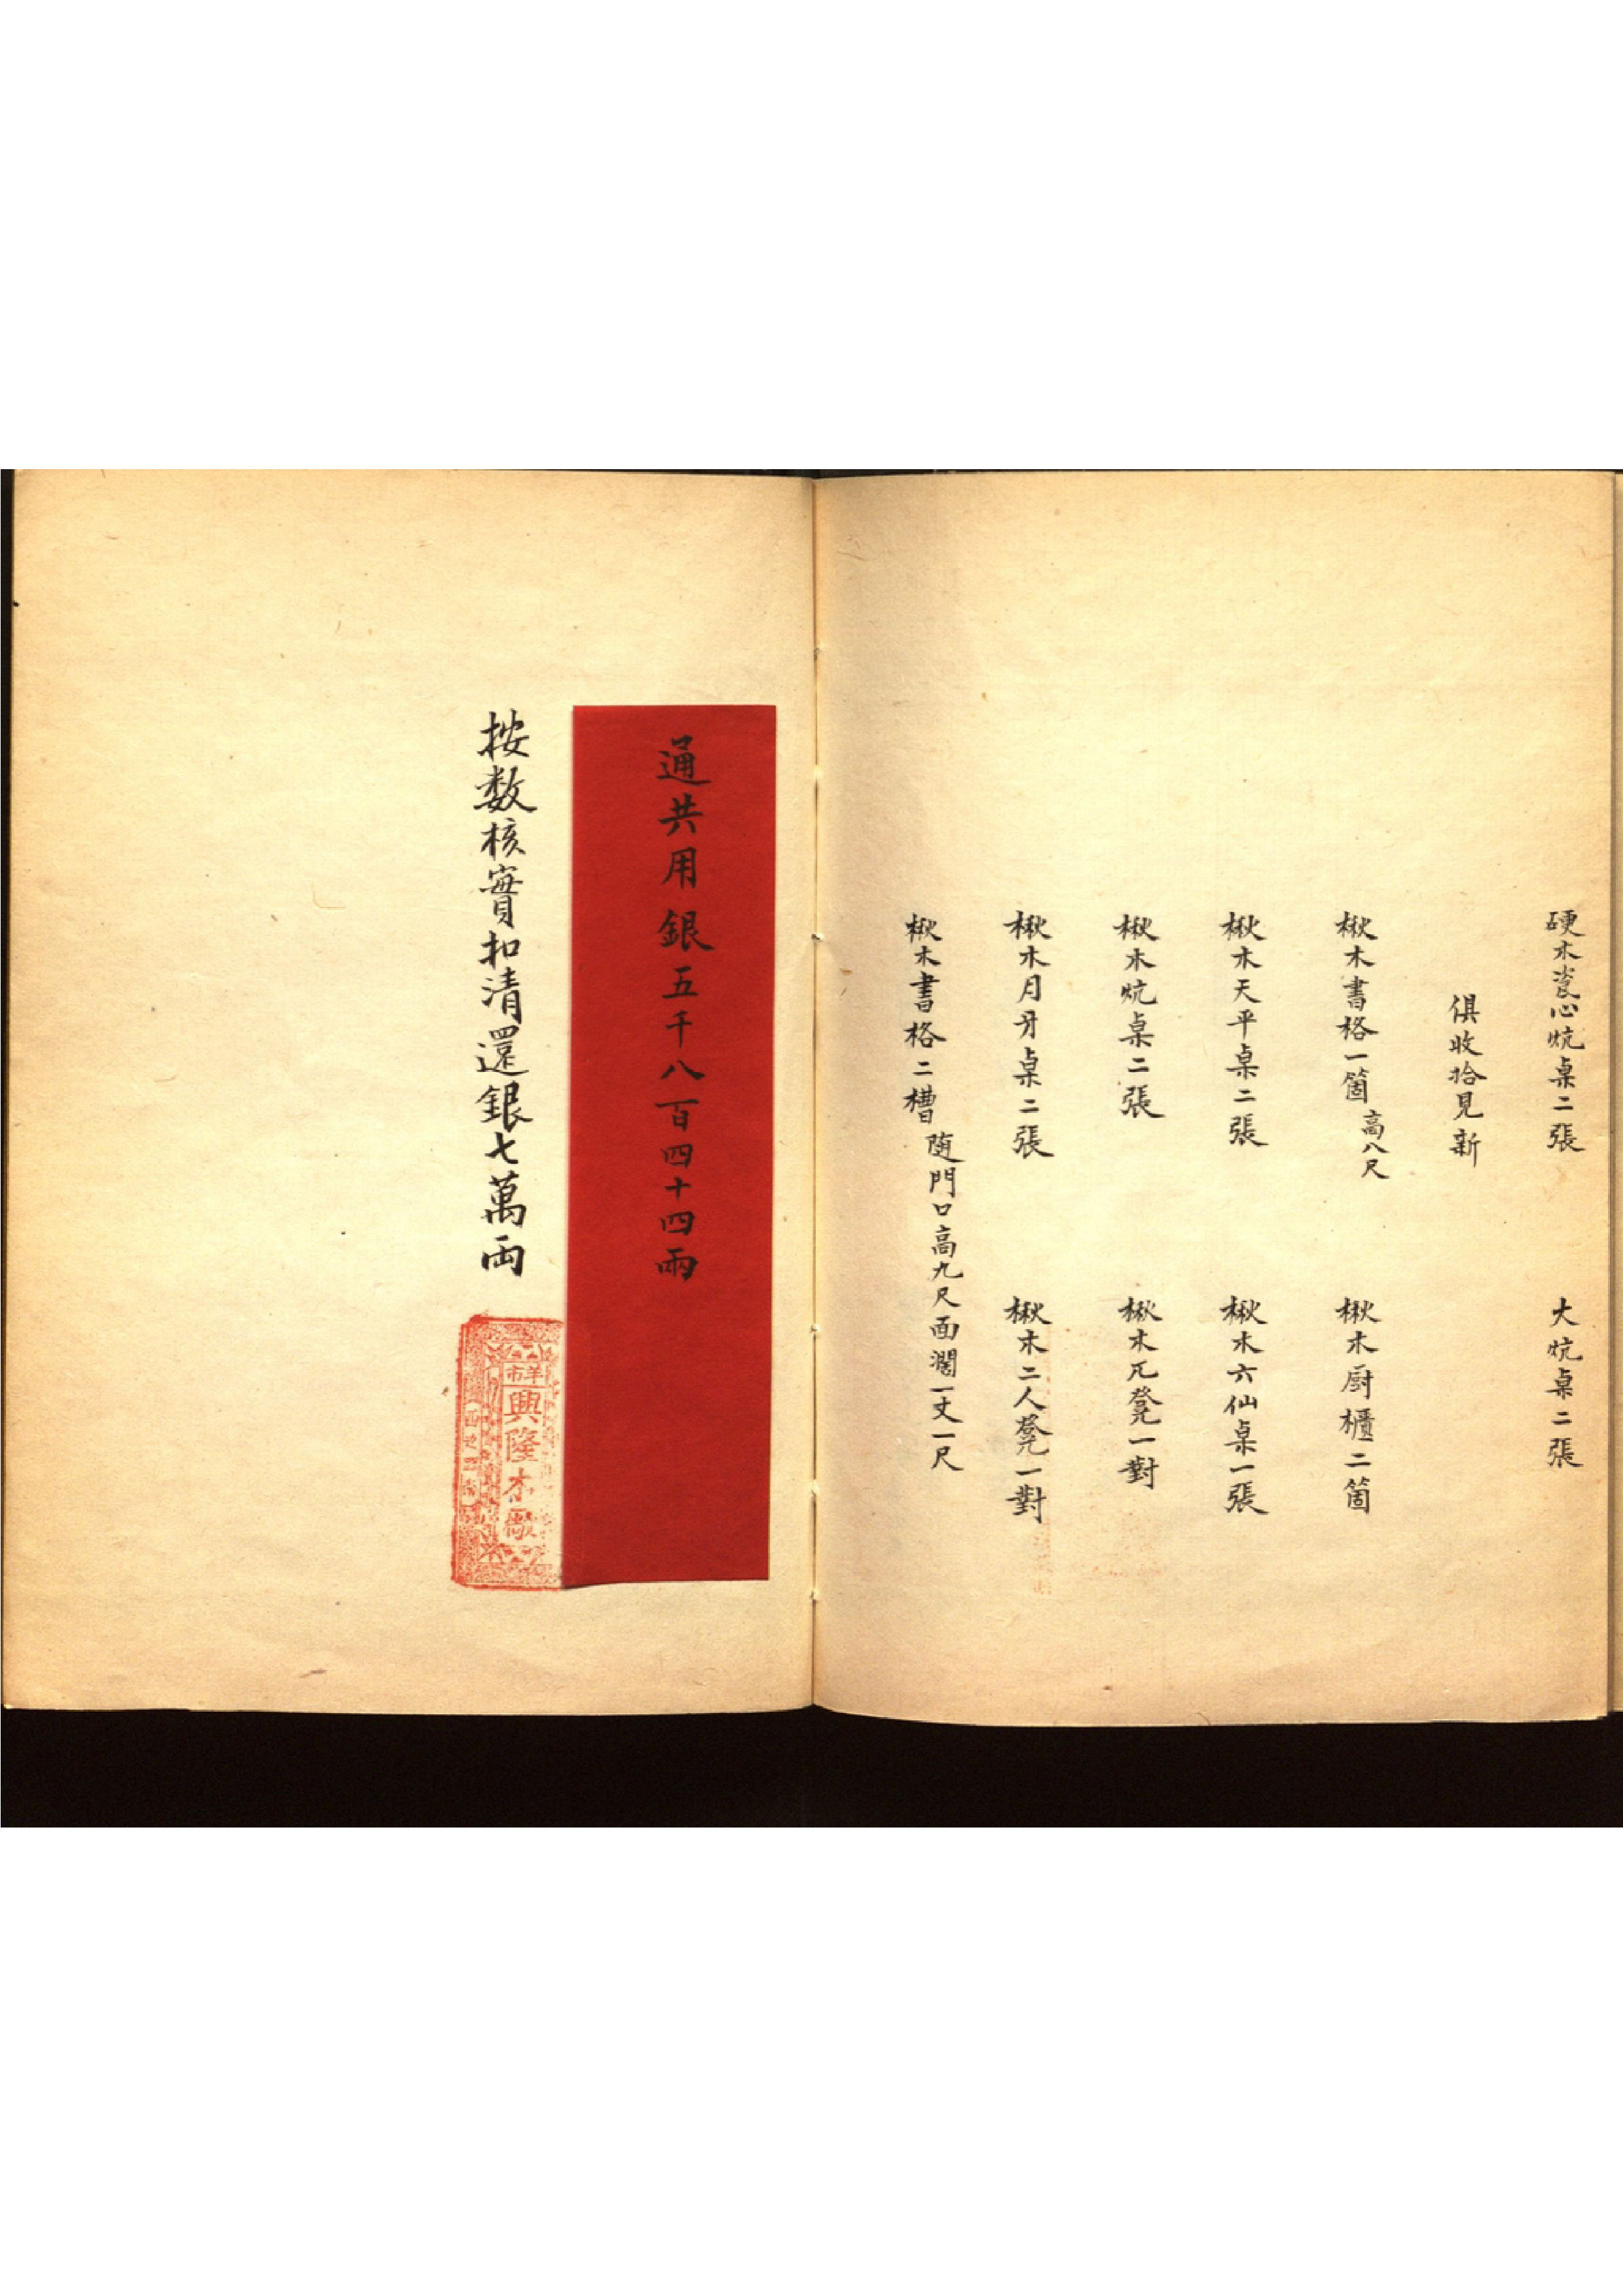 硬木瓷心炕桌二張
大炕桌二張
俱收拾見新
楸木書格一箇 高八尺
楸木厨櫃二箇
楸木天平桌二張
楸木六仙桌一張
楸木炕桌二張
楸木兀凳一對
楸木月牙桌二張
楸木二人凳一對
楸木書格二槽 随門口高九尺面濶一丈一尺
通共用銀五千八百四十四兩
按数核實扣清還銀七萬両
羊市
興隆木厰